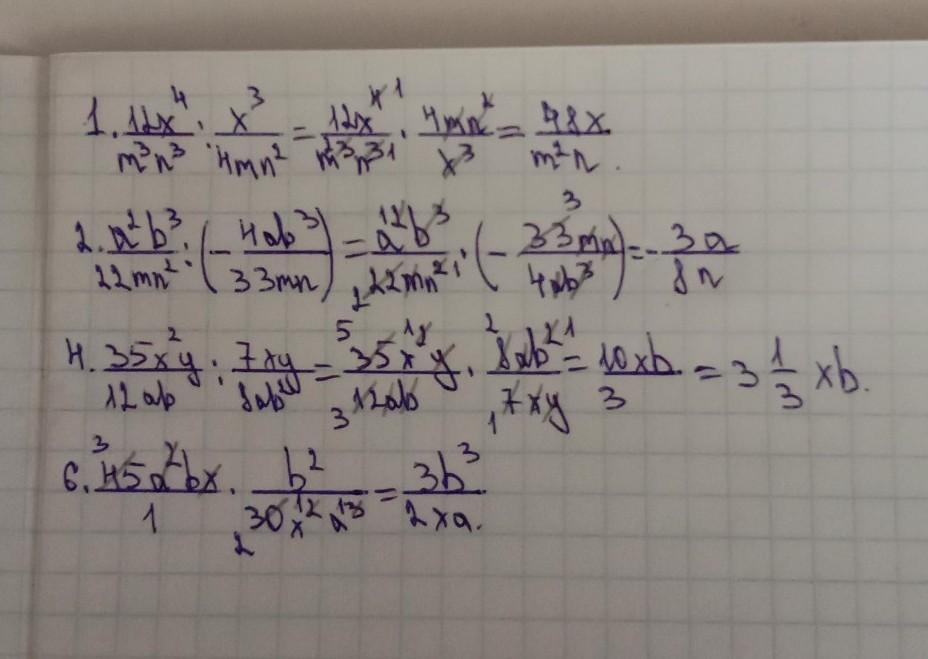 1. 12x⁴/m³n³ : x³/4mn² = 12x⁴ ¹/m²³n³¹ · 4mn²/x³ = 48x/m²n.
2. a²b³/22mn² : (-4ab³/33mn) = a¹²b³/₂22mn²¹ · (-33³mn/4ab³) = -3a/8n
4. 35x²y/12ab : 7xy/8ab² = ⁵35x¹²y/₃12ab · ²8ab²¹/₁7xy = 10xb/3 = 3 1/3 xb.
6. ³45a²bx/1 · b²/₂30x¹²a¹³ = 3b³/2xa.